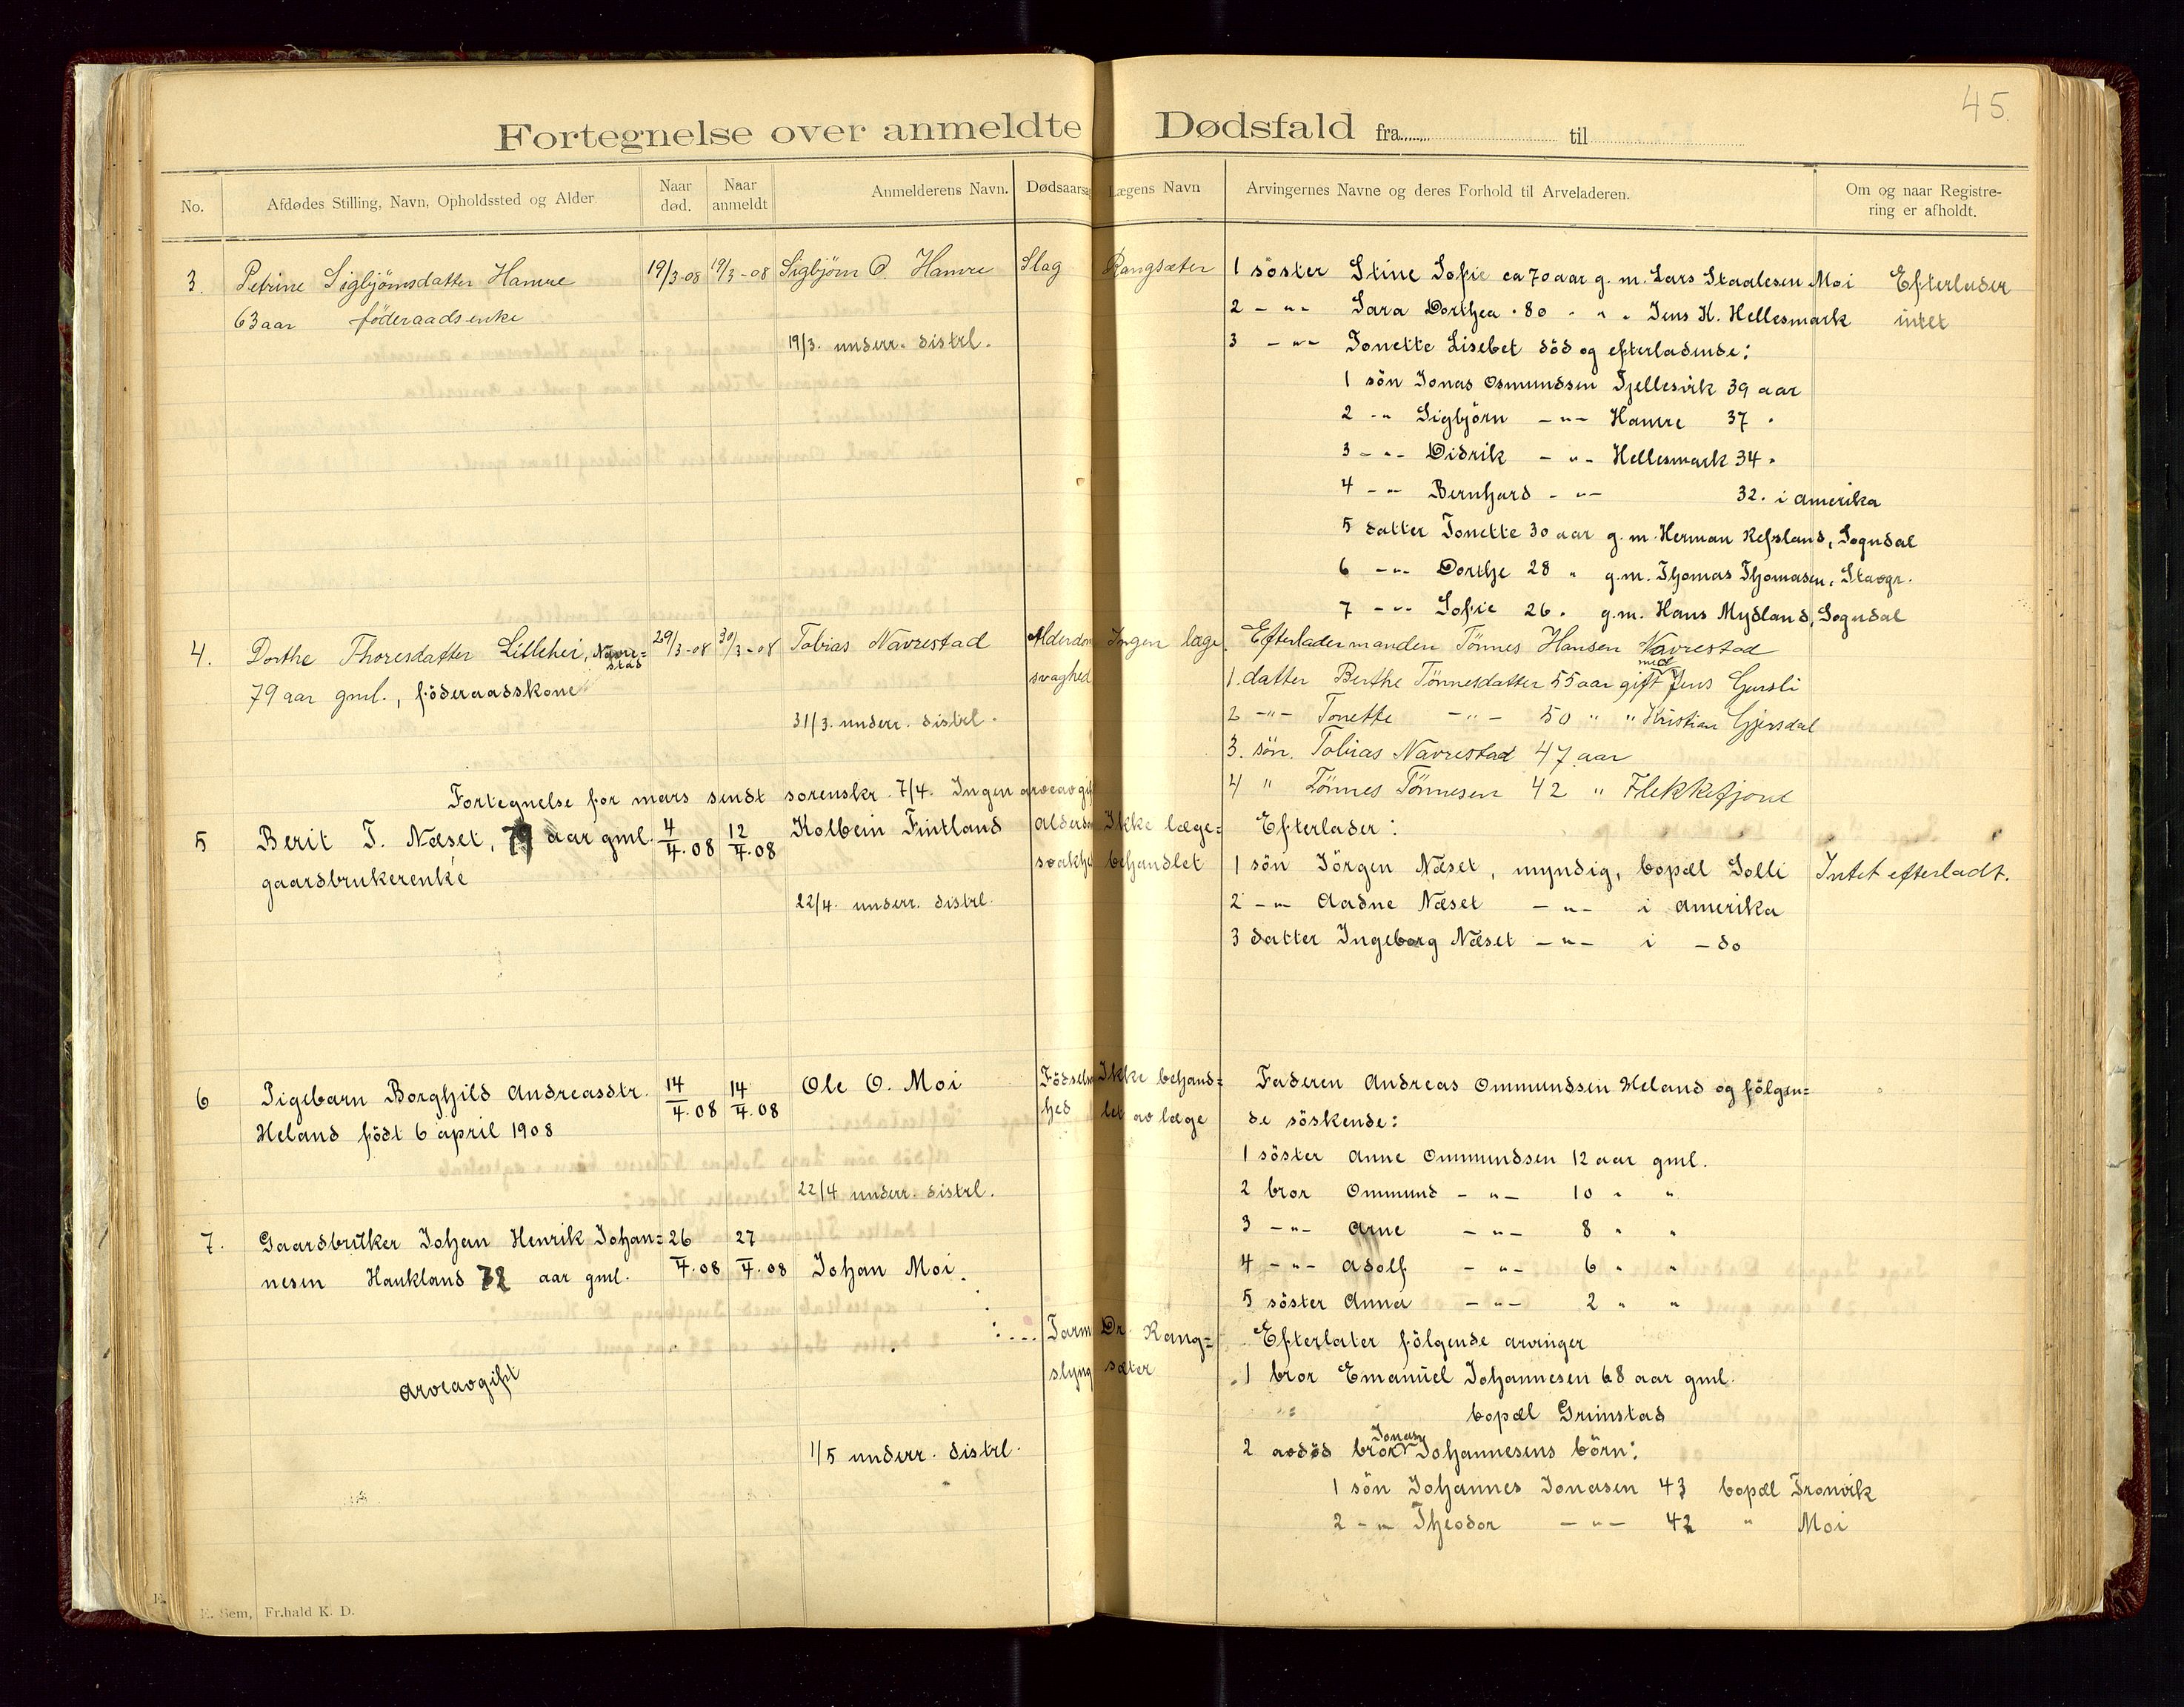 45.
Fortegnelse over anmeldte Dødsfald fra til
No. Afdødes Stilling, Navn, Opholdssted og Alder Naar død. Naar anmeldt Anmelderens Navn. Dødsaarsag Lægens Navn Arvingernes Navne og deres Forhold til Arveladeren. Om og naar Registrering er afholdt.
3. Petrine Sigbjørnsdatter Hamre 19/3-08 19/3-08 Sigbjørn O. Hamre Slag Rangsæter 1 söster Stine Sofie ca 70 aar g. m. Lars Staalesen Moi Efterlader
63 aar föderaadsenke 2 - " - Sara Dorthea " 80 - " " Jens K. Hellesmark intet
19/3. underr. distrl. 3 - " - Tonette Lisebet död og efterladende:
1 sön Jonas Osmundsen Fjellesvik 39 aar
2 - " Sigbjörn - " - Hamre 37 "
3 - " - Didrik - " - Hellesmark 34 "
4 - " - Bernhard - " - 32. i Amerika
5 datter Tonette 30 aar g. m. Herman Refsland, Sogndal
6 - " - Dorthe 28 " g.m. Thomas Thomasen, Stavgr.
7 - " - Sofie 26. g.m. Hans Mydland, Sogndal
4. Dorthe Thoresdatter Lillehei, Navre= stad 29/3-08 30/3-08 Tobias Navrestad Alderdom Ingen læge. Efterlader manden Tönnes Hansen Navrestad
79 aar gml., föderaadskone svaghed 1. datter Berthe Tönnesdatter 55 aar gift med Jens Gursli
31/3. underr. distrl. 2 - " - Tonette - " - 50 " " Kristian Gjersdal
3. sön. Tobias Navrestad 47 aar
Fortegnelse for mars sendt sorenskr. 7/4. Ingen arveavgift 4 " Tönnes Tönnesen 42 " Flekkefjord
5 Berit T. Næset, 79 aar gml. 4/4.08 12/4.08 Kolbein Fintland Alderdo Ikke læge= Efterlader:
gaardbrukerenke svakhe behandlet 1 sön Jörgen Næset, myndig, bopæl Solli Intet efterladt.
22/4. underr. distrl. 2 - " - Aadne Næset - " - i Amerika
3 datter Ingeborg Næset - " - i - do
6 Pigebarn Borghild Andreasdtr. 14/4.08 14/4.08 Ole O. Moi Födselsv Ikke behand= Faderen Andreas Ommundsen Heland og fölgen=
Heland födt 6 april 1908 hed let av læge de söskende:
1 söster Anne Ommundsen 12 aar gml.
22/4 underr. distrl. 2 bror Ommund - " - 10 " "
3 - " - Arne - " - 8 " "
7. Gaardbruker Johan Henrik Johan= 26/4.08 27/4.08 Johan Moi.
nesen Haukland 72 aar gml. 4 - " - Adolf - " - 6 " "
5 söster Anna - " - 2 " "
Tarm Dr. Rang= Efterlater fölgende arvinger
slyng sæter 1 bror Emanuel Johannesen 68 aar gml.
arveavgift bopæl Grimstad
1/5 underr. distrl. 2 avdöd bror Jonas Johannesens börn:
1 sön Johannes Jonasen 43 bopæl Tronvik
2 - " - Theodor - " - 42 " Moi
E. Sem, Fr.hald K. D.